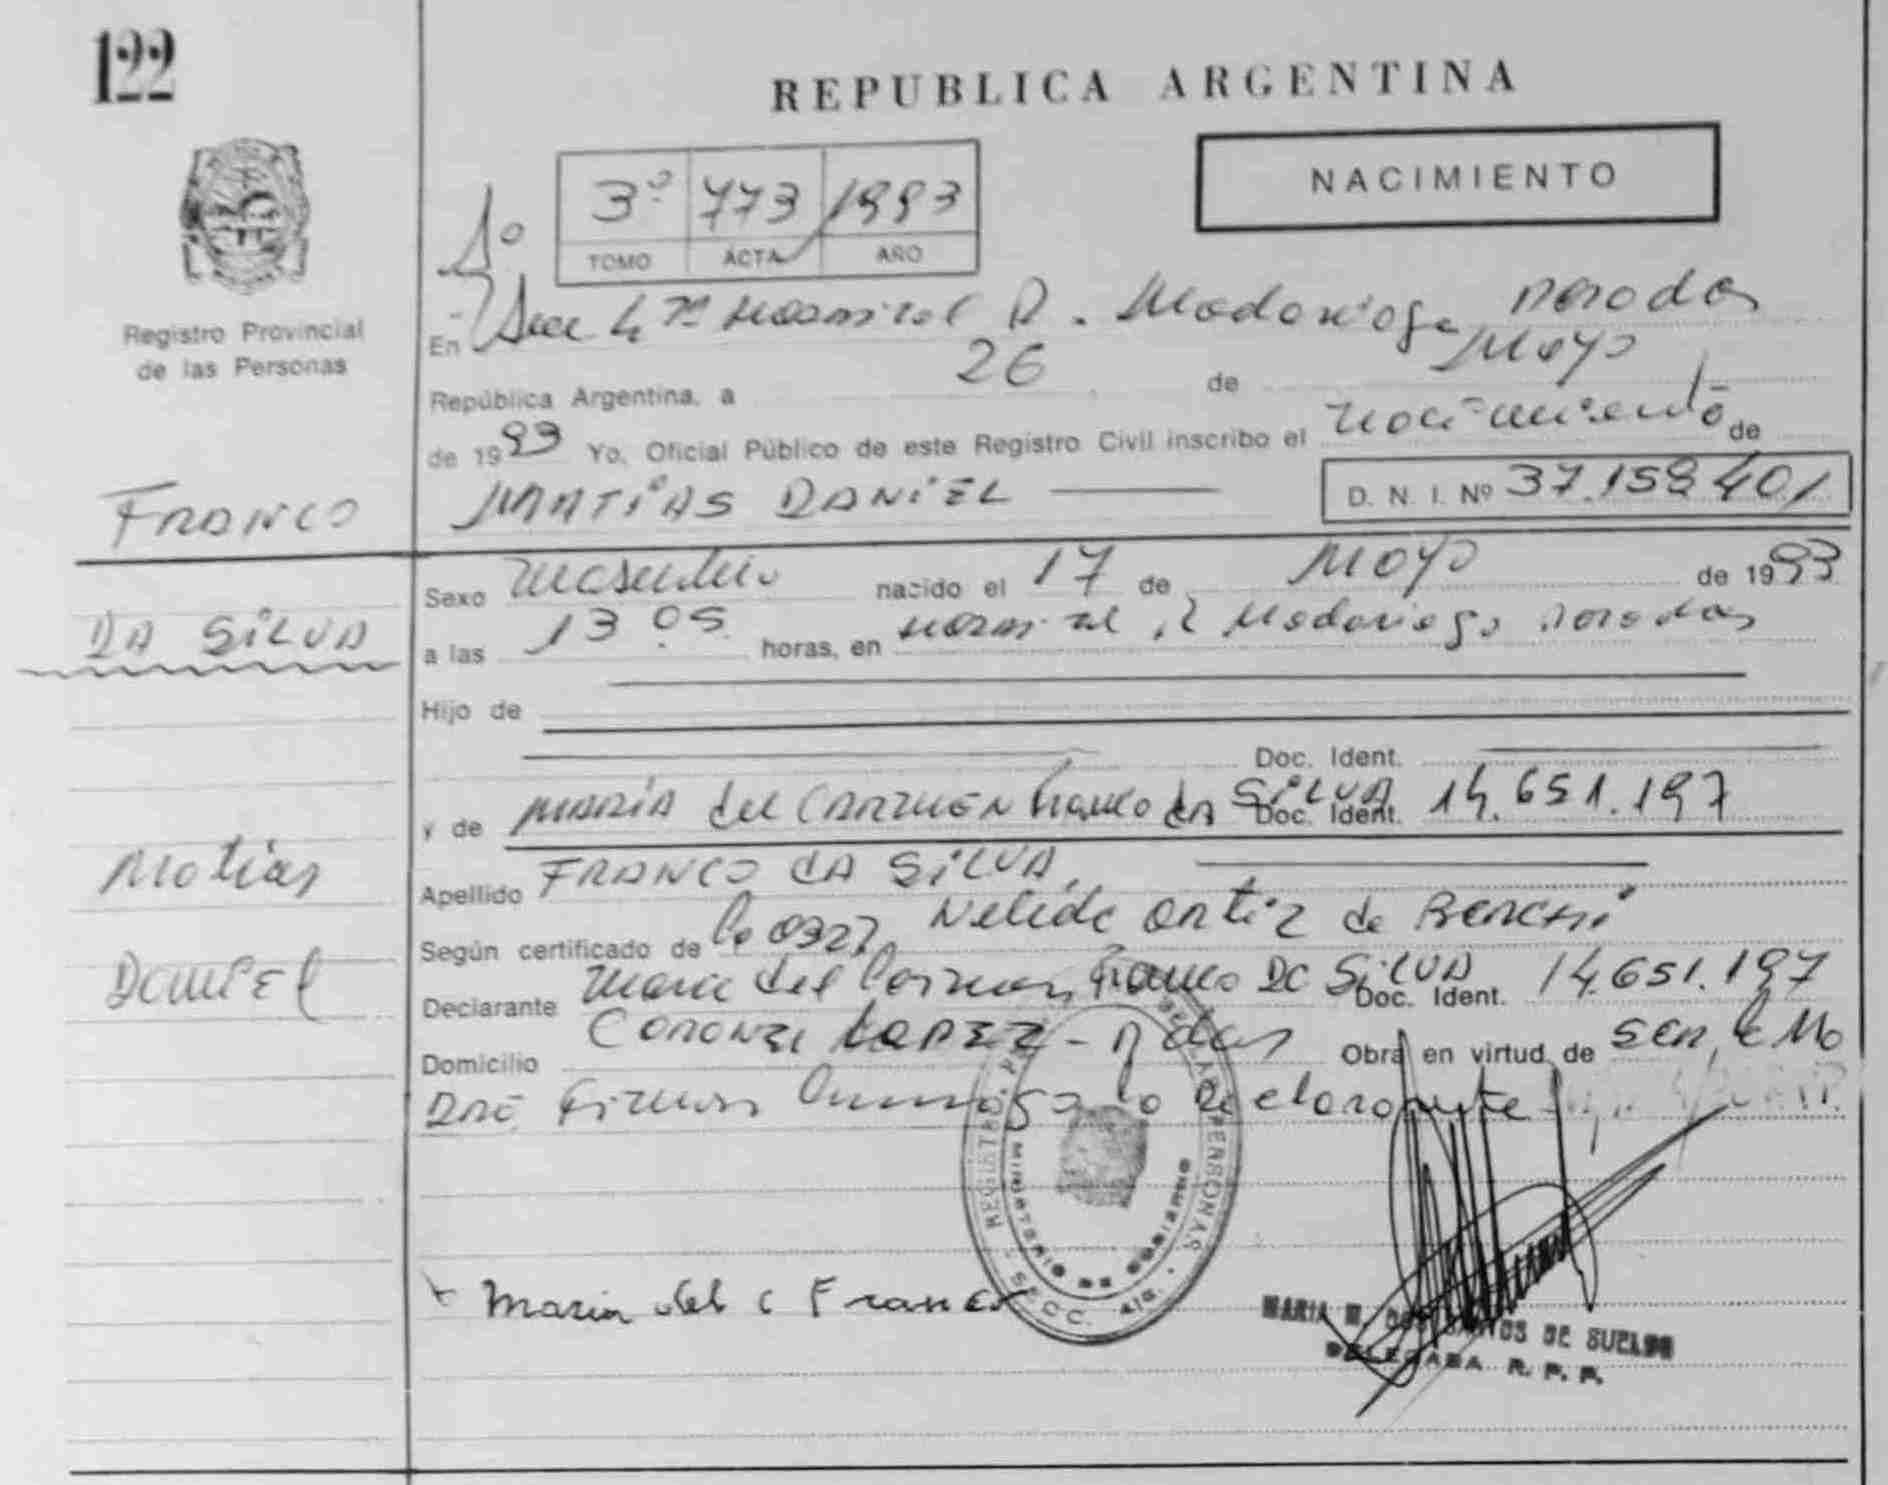 122
REPUBLICA ARGENTINA
NACIMIENTO
3º 773 1993
TOMO ACTA AÑO
1º
Registro Provincial
de las Personas
En Secc 4ª Hospital R. Madariaga, Posadas
República Argentina, a 26 de Mayo
de 1993 Yo, Oficial Público de este Registro Civil inscribo el nacimiento de
FRANCO MATIAS DANIEL D. N. I. Nº 37.159.401
DA SILVA
Sexo Masculino nacido el 17 de Mayo de 1993
a las 13 05 horas, en Hospital R Madariaga Posadas
Hijo de
Doc. Ident.
y de MARÍA del CARMEN Franco da SILVA Doc. Ident. 14.651.197
Matias
Apellido FRANCO dA SILVA
Según certificado de Nelida Ortiz de
Daniel
Declarante Maria del Carmen Franco Da SILVA Doc. Ident. 14.651.197
Domicilio CORONEL LOPEZ - Obra en virtud de ser la Ma
dre Firman la declarante
REGISTRO PERSONAS
MINISTERIO DE GOBIERNO
SECC. 4ta.
Maria del C Franco
MARIA M. DOS SANTOS DE
DELEGADA R. P. P.